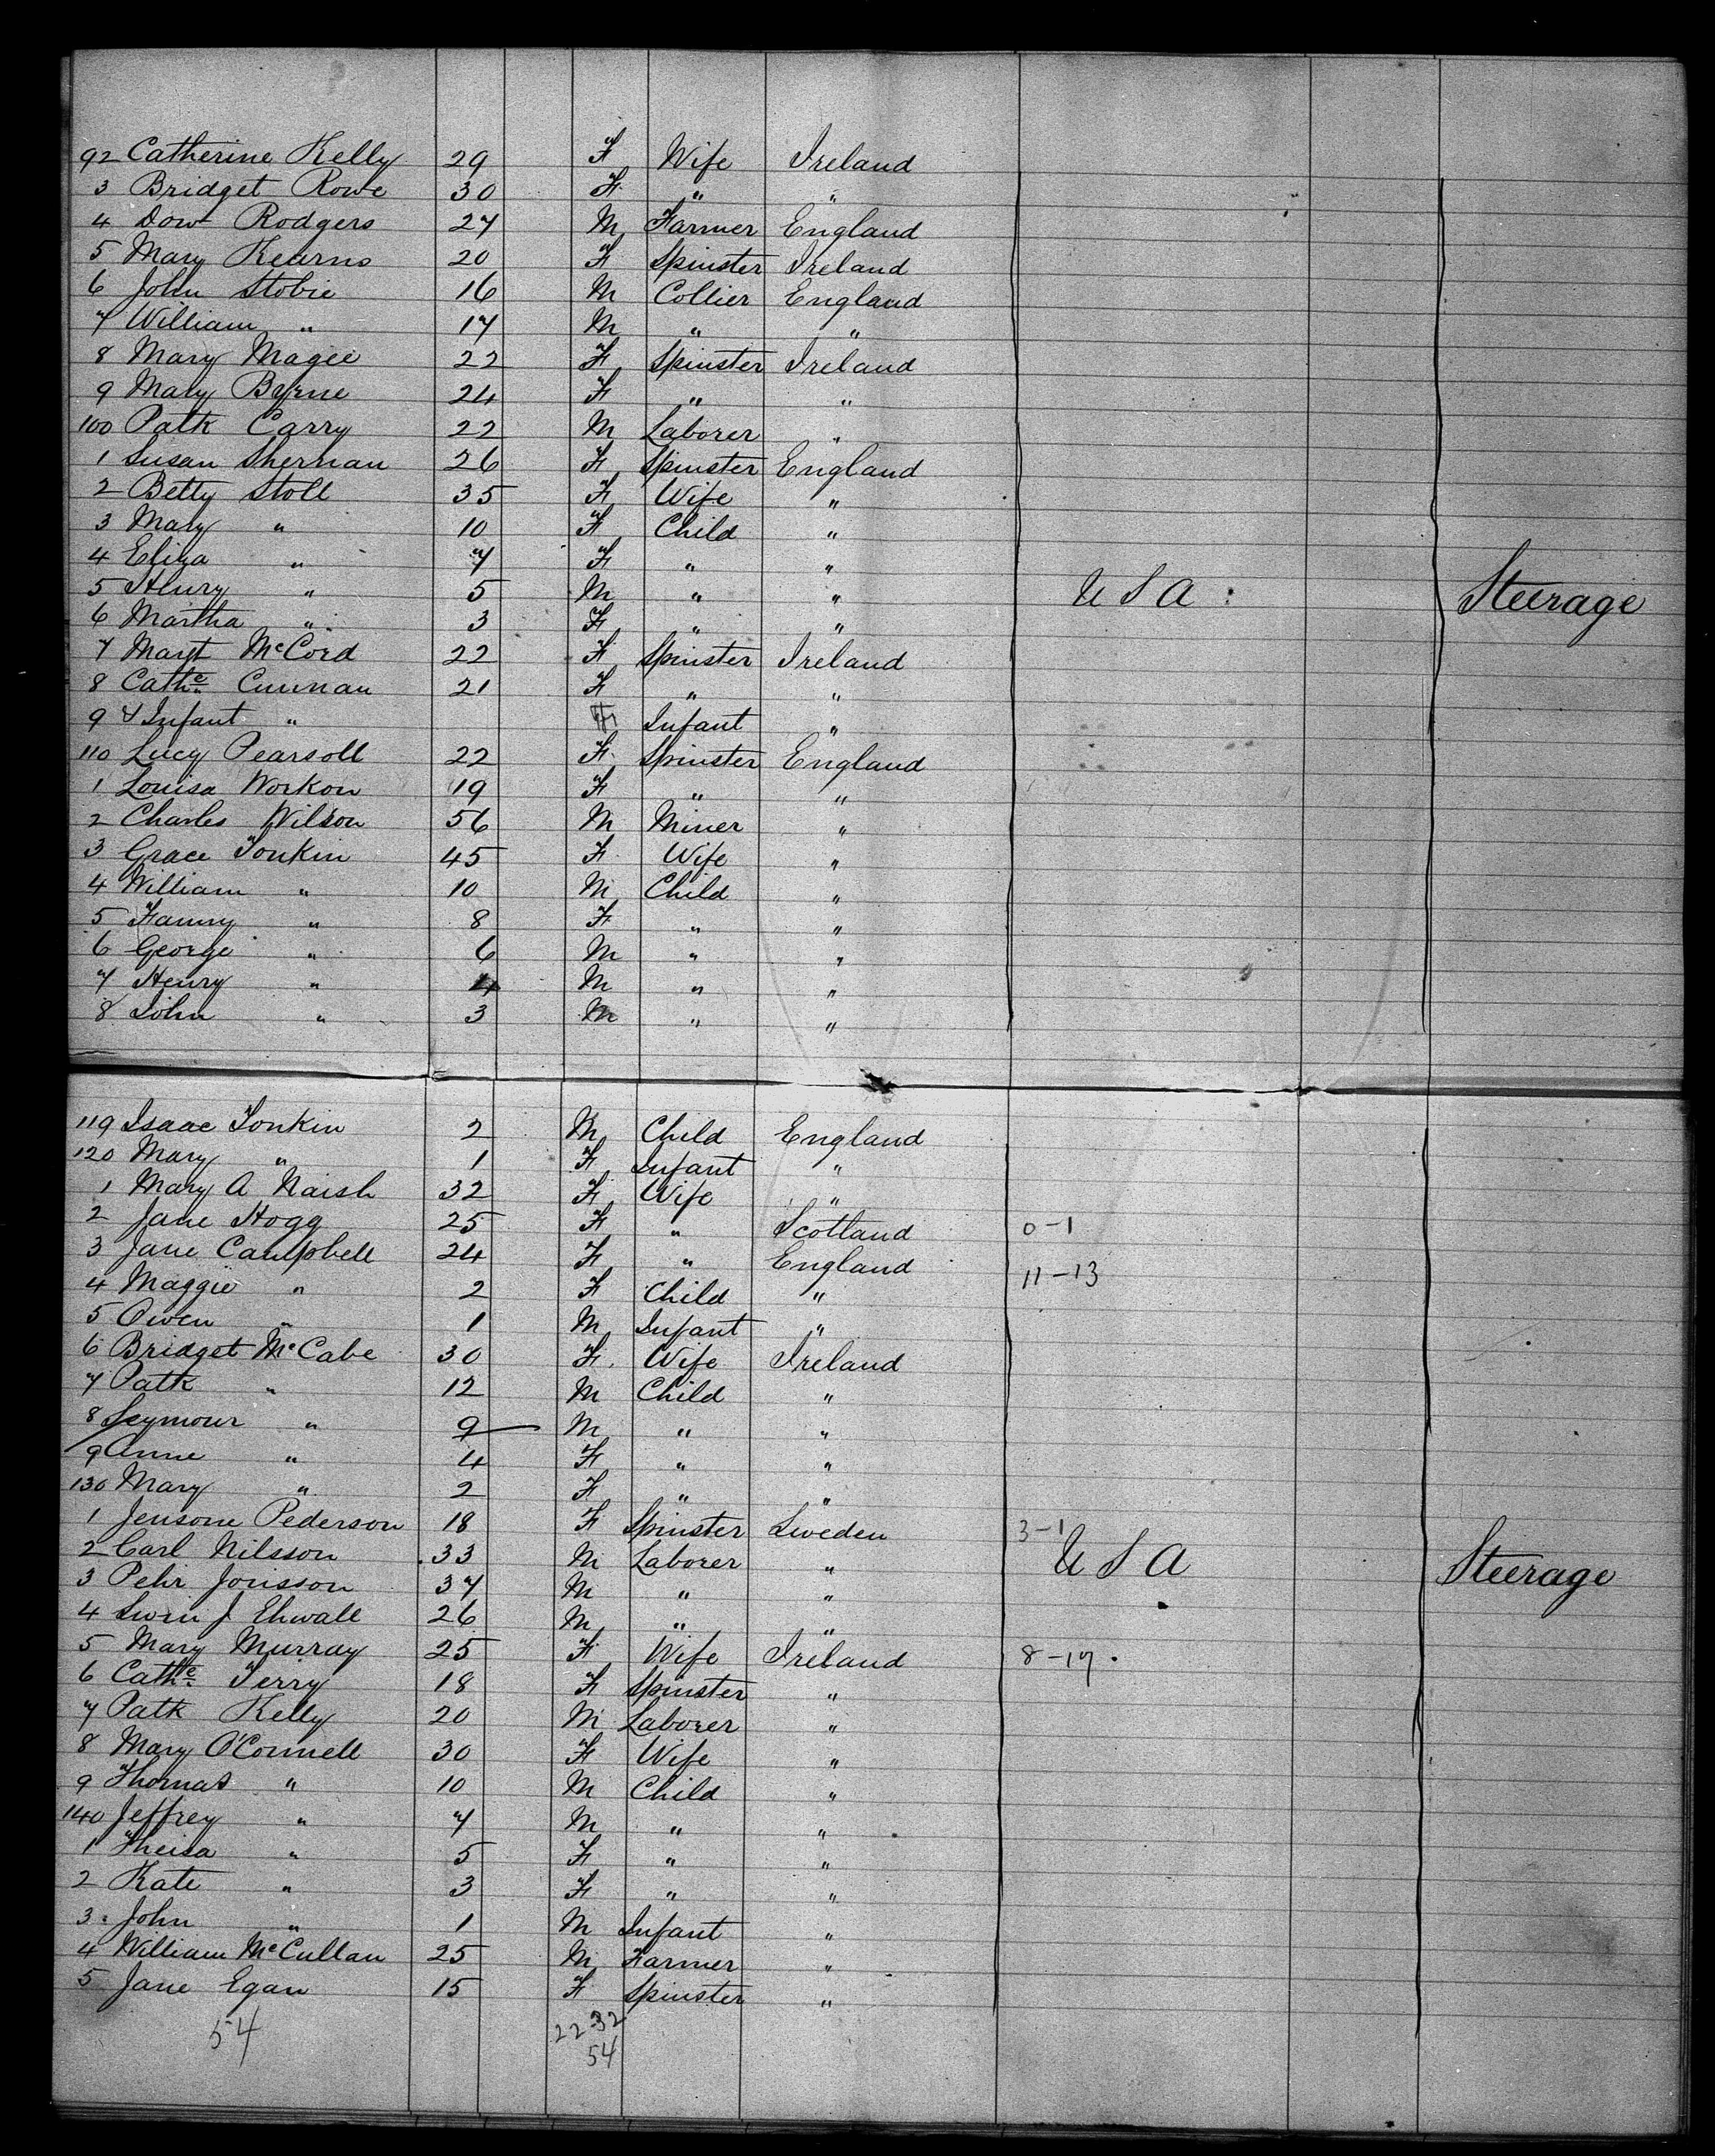 92 Catherine Kelly 29 F Wife Ireland
3 Bridget Rowe 30 F " "
4 Dow Rodgers 27 M Farmer England
5 Mary Kearns 20 F Spinster Ireland
6 John Stobie 16 M Collier England
7 William " 17 M " "
8 Mary Magee 22 F Spinster Ireland
9 Mary Byrne 24 F " "
100 Patk Carry 22 M Laborer "
1 Susan Shernan 26 F Spinster England
2 Betty Stoll 35 F Wife "
3 Mary " 10 F Child "
4 Eliza " 7 F " "
5 Henry " 5 M " " U S A : Steerage
6 Martha " 3 F " "
7 Margt McCord 22 F Spinster Ireland
8 Cathe Cunnan 21 F " "
9 & Infant " F Infant "
110 Lucy Pearsoll 22 F Spinster England
1 Louisa Workon 19 F " "
2 Charles Wilson 56 M Miner "
3 Grace Tonkin 45 F Wife "
4 William " 10 M Child "
5 Fanny " 8 F " "
6 George " 6 M " "
7 Henry " 4 M " "
8 John " 3 M " "
119 Isaac Tonkin 2 M Child England
120 Mary " 1 F Infant "
1 Mary A Naish 32 F Wife "
2 Jane Hogg 25 F " Scotland 0-1
3 Jane Campbell 24 F " England 11-13
4 Maggie " 2 F Child "
5 Owen " 1 M Infant "
6 Bridget McCabe 30 F Wife Ireland
7 Patk " 12 M Child "
8 Seymour " 9 M " "
9 Anne " 4 F " "
130 Mary " 2 F " "
1 Jensone Pederson 18 F Spinster Sweden 3-1
2 Carl Nilsson 33 M Laborer " U S A Steerage
3 Pehr Jonsson 37 M " "
4 Swin J Ehwall 26 M " "
5 Mary Murray 25 F Wife Ireland 8-17
6 Cathe Terry 18 F Spinster "
7 Patk Kelly 20 M Laborer "
8 Mary O'Connell 30 F Wife "
9 Thomas " 10 M Child "
140 Jeffrey " 7 M " "
1 Theisa " 5 F " "
2 Kate " 3 F " "
3 John " 1 M Infant "
4 William McCullan 25 M Farmer "
5 Jane Egan 15 F Spinster "
54 22 32
54